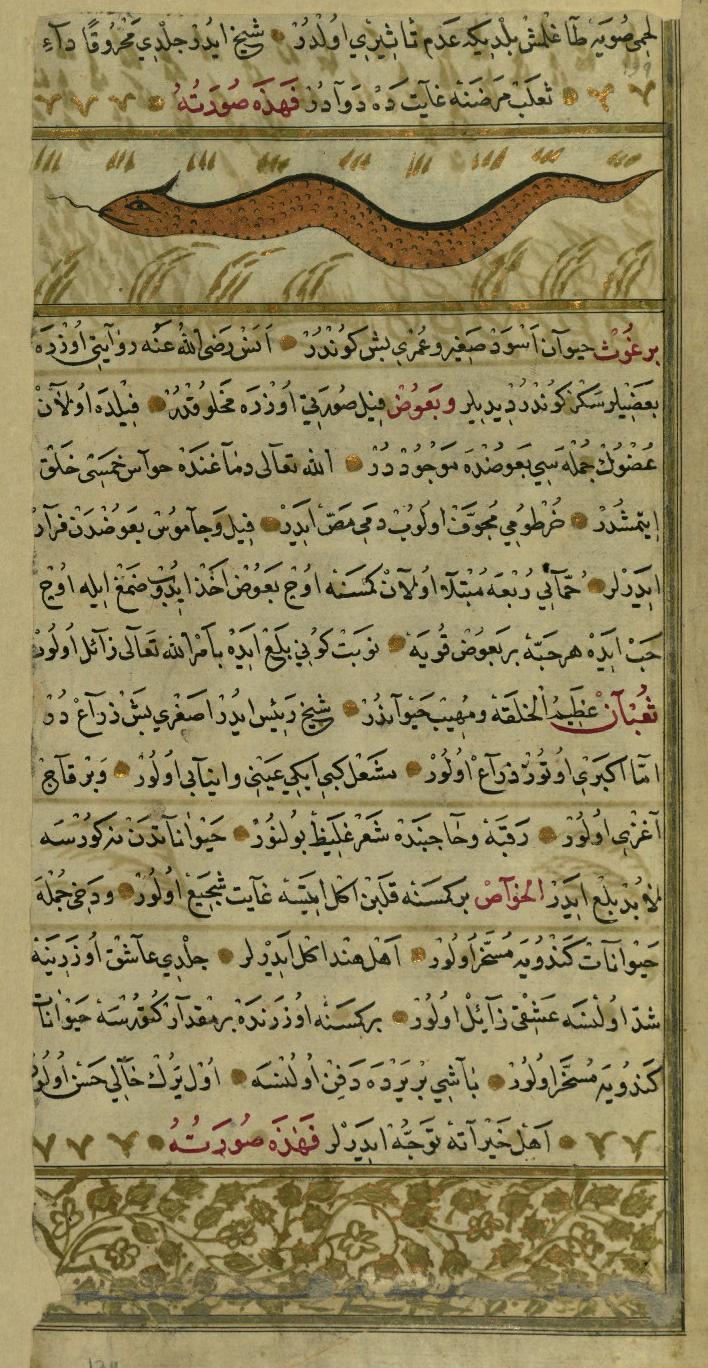 لحمی صویه طاغلمش بلدیکه عدم تاثیری اولدر شیخ ایدر جلدی محروقا داء
ثعلب مرضنه غایت ده دوادر فهذه صورته
برغوث حیوان اسود صغیر و عمری بش کوندر انس رضی الله عنه روایتی اوزره
بعضیلر سکز کوندر دیدیلر و بعوض فیل صورتی اوزره مخلوقدر فیلده اولان
عضوک جمله سی بعوضده موجوددر الله تعالی دماغنده حواس خمسی خلق
ایتمشدر خرطومی مجوف اولوب دمی مص ایدر فیل و جاموس بعوضدن فرار
ایدرلر حمآئی ربعه مبتلا اولان کمسنه اوچ بعوض اخذ ایدوب صمغ ایله اوچ
حب ایده هر حبه بر بعوض قویه نوبت کونی بلع ایده بامر الله تعالی زائل اولور
ثعبان عظیم الخلقه و مهیب حیواندر شیخ رئیس ایدر اصغری بش ذراع در
اما اکبری اوتوز ذراع اولور مشعل کبی ایکی عینی و انیابی اولور و بر قاچ
آغزی اولور رقبه و حاجبنده شعر غلیظ بولنور حیواناتدن نه کورسه
لابد بلع ایدر الخواص بر کسنه قلبن اکل ایتسه غایت شجیع اولور و دخی جمله
حیوانات کندویه مسخر اولور اهل هند اکل ایدرلر جلدی عاشق اوزرینه
شد اولنسه عشقی زائل اولور بر کسنه اوزرنده بر مقدار کتورسه حیوانات
کندویه مسخر اولور باشی بر یرده دفن اولنسه اول یرک حالی حسن اولور
اهل خیراته توجه ایدرلر فهذه صورته